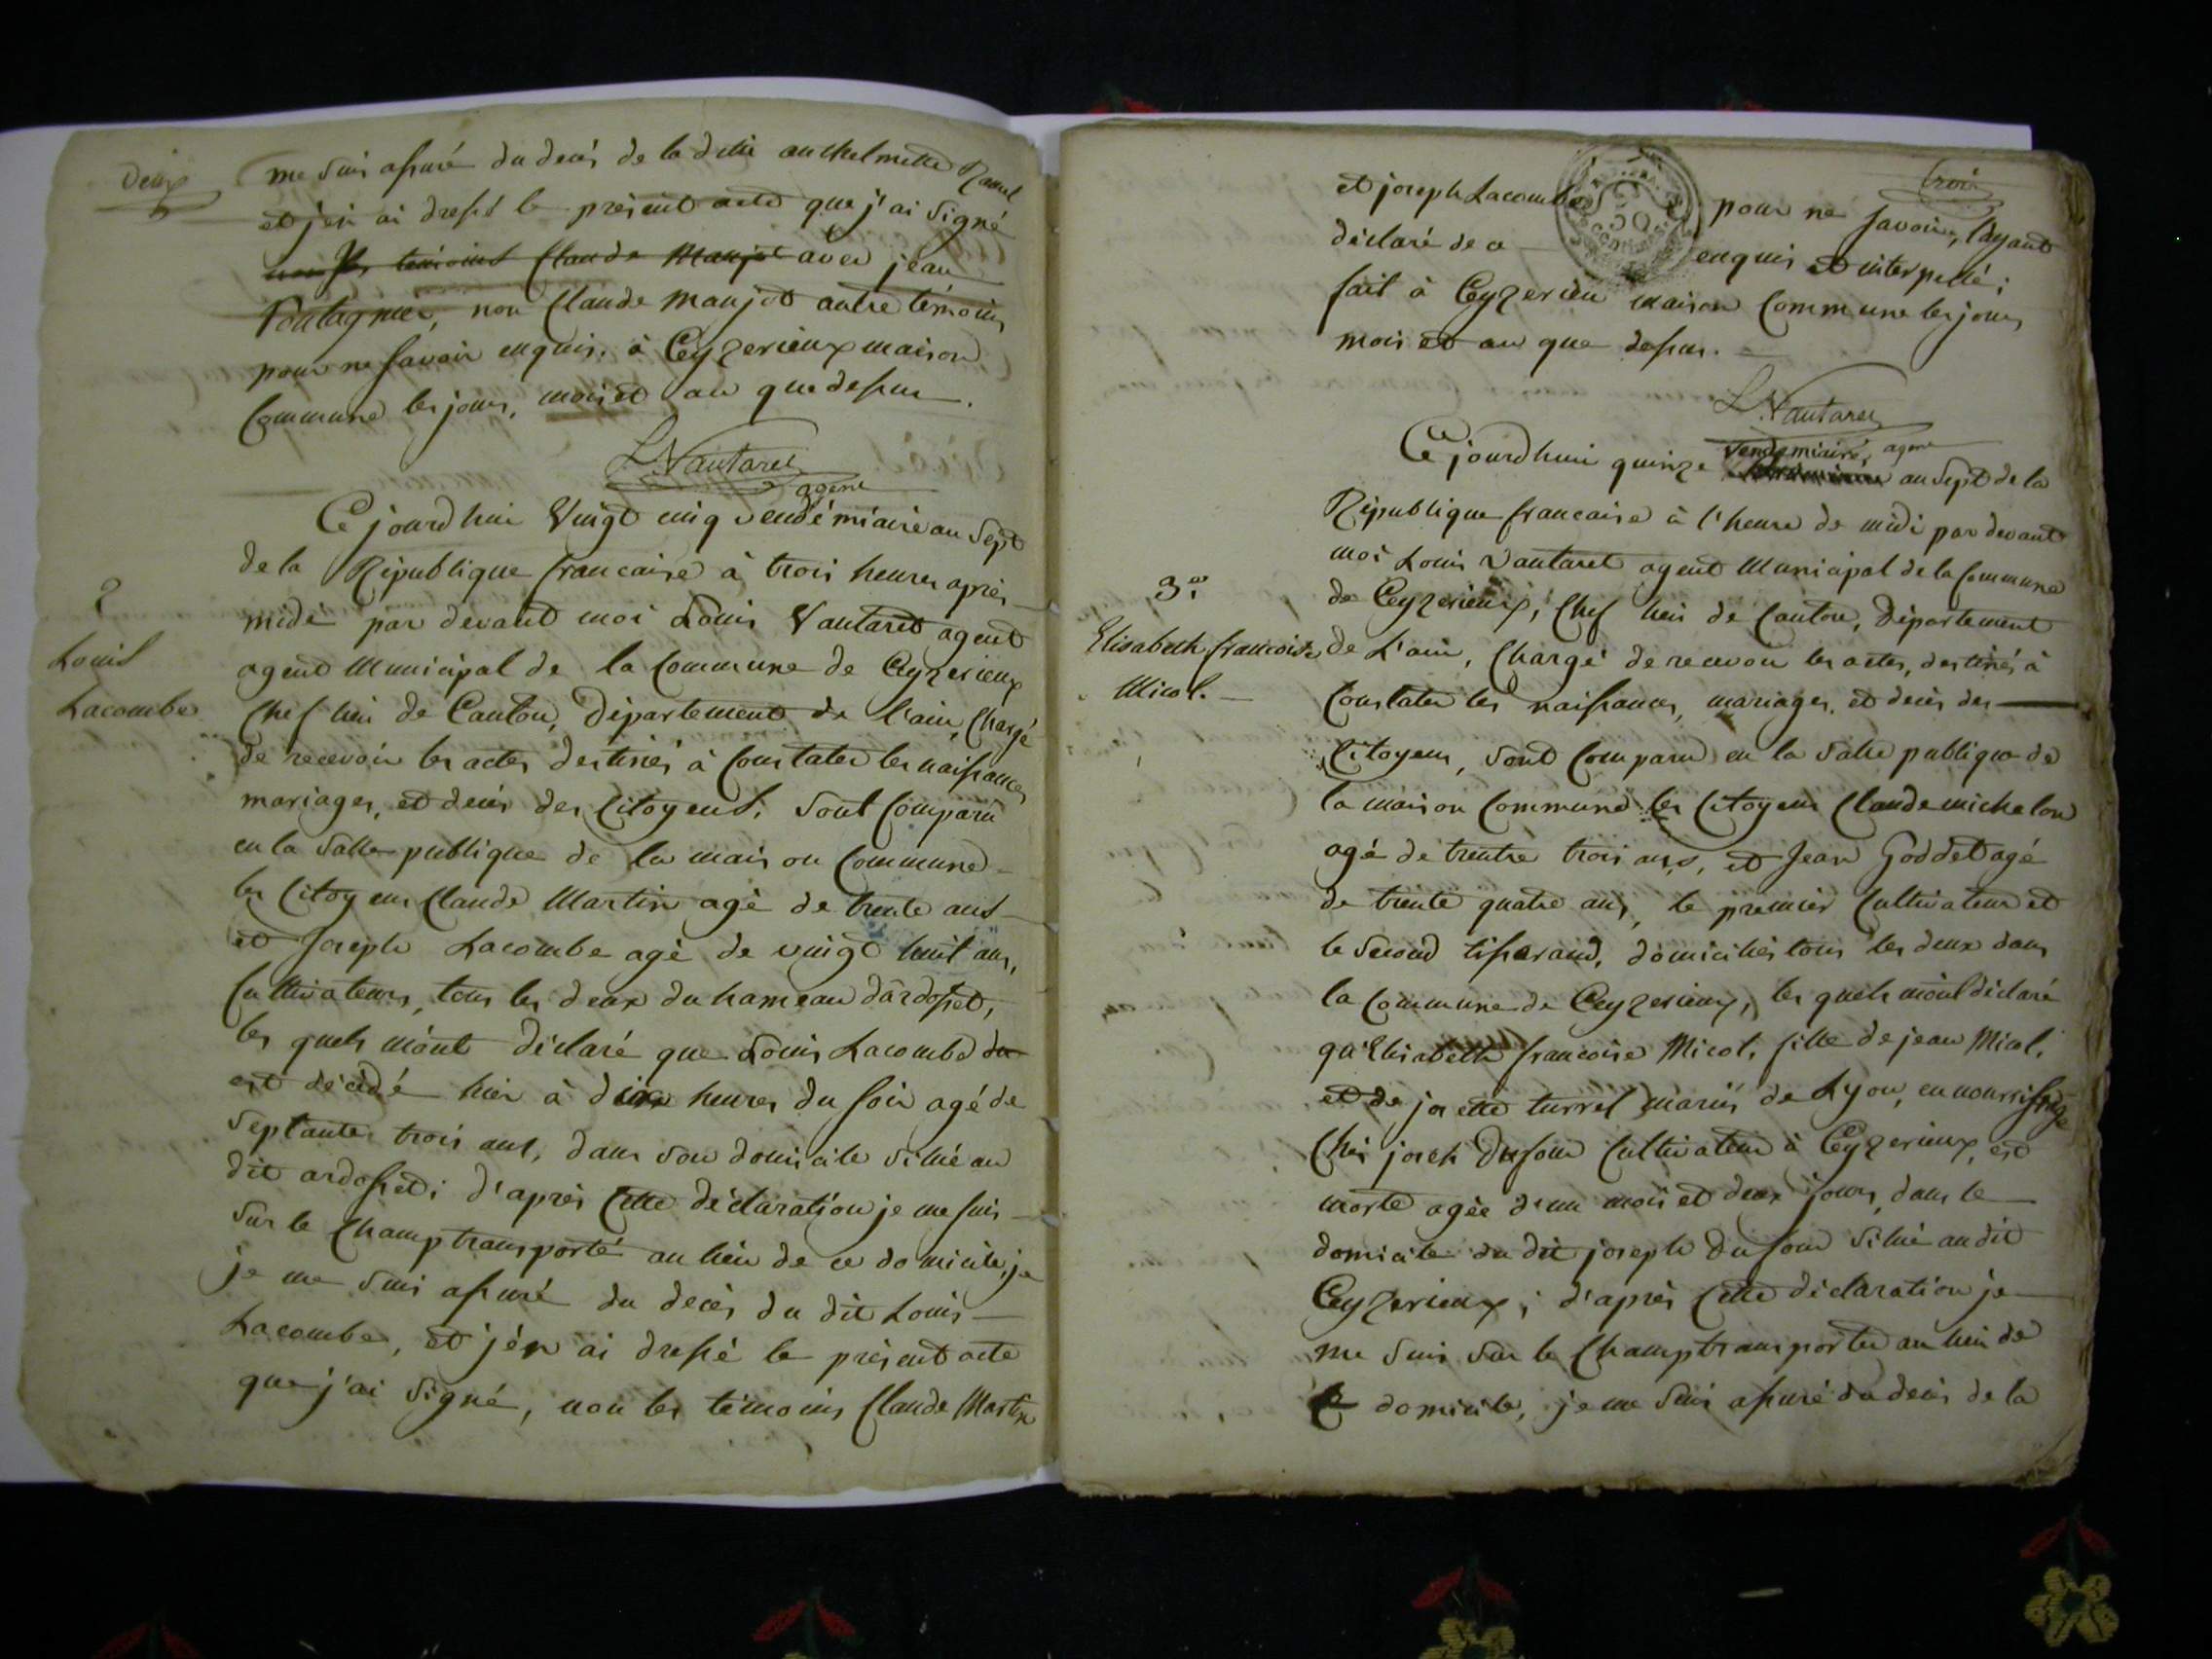 Deux
me suis assuré du decés de la dite anthelmette Ravel
et j'en ai dressé le présent acte que j'ai signé
non les témoins Claude Manjot avec jean
Pontagnier, non Claude Manjot autre témoins
pour ne savoir enquis. à Ceyzerieux maison
Commune les jours, mois et an que dessus.
L. Vantaret
agent
Ce jourd'hui Vingt cinq vendémiaire an Sept
de la République francaise à trois heures après
midi par devant moi Louis Vantaret agent
2
Louis
Lacombe
agent Municipal de la Commune de Ceyzerieux
Chef lieu de Canton, Département de l'ain, Chargé
de recevoir les actes destinés à Constater les naissances
mariages, et decés des Citoyens, sont Comparu
en la salle publique de la maison Commune
les Citoyens Claude Martin agé de trente ans
et Joseph Lacombe agé de vingt huit ans,
Cultivateurs, tous les deux du hameau d'ardosset,
les quels m'ont déclaré que Louis Lacombe du
est décédé hier à dix heures du soir agé de
septante trois ans, dans son domicile situé au
dit ardosset; d'après Cette déclaration je me suis
sur le Champ transporté au lieu de ce domicile, je
je me suis assuré du decés du dit Louis
Lacombe, et j'en ai dressé le présent acte
que j'ai signé, non les témoins Claude Martin
trois
et joseph Lacombe pour ne savoir, l'ayant
50
déclaré de ce enquis et interpellé;
fait à Ceyzerieu maison Commune les jours
mois et an que dessus.
L. Vantaret
agent
vendemiaire,
Ce jourd'hui quinze an Sept de la
République francaise à l'heure de midi par devant
moi Louis Vantaret agent Municipal de la Commune
3.e
Elisabeth francoise
Micol.
de Ceyzerieux, Chef lieu de Canton, Département
de L'ain, Chargé de recevoir les actes, destinés à
Constater les naissances, mariages, et decés des
Citoyens, sont Comparu en la salle publique de
la maison Commune les Citoyens Claude michelon
agé de trentre trois ans, et Jean Goddet agé
de trente quatre ans, le premier Cultivateur et
le second tisserand, domiciliés tous les deux dans
la Commune de Ceyzerieux, les quels m'ont déclaré
qu'Elisabeth francoise Micol, fille de jean Micol,
et de josette turrel mariés de Lyon, en nourrissage
Chés joseh Dufour Cultivateur à Ceyzerieux, est
morte agée d'un mois et deux jours, dans le
domicile du dit joseph Dufour situé au dit
Ceyzerieux; d'après Cette déclaration je
me suis sur le Champ transporter au lieu de
Ce domicile, je me suis assuré du decés de la